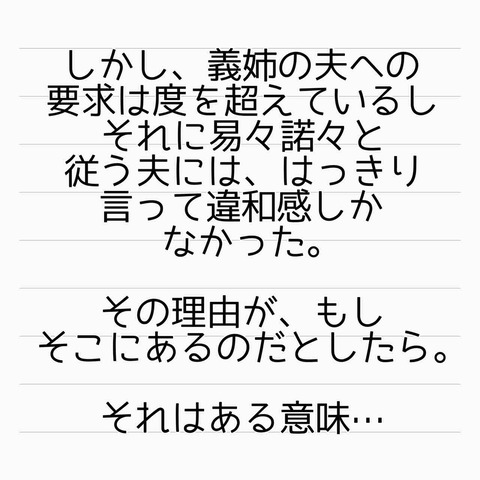 しかし、義姉の夫への
要求は度を超えているし
それに易々諾々と
従う夫には、はっきり
言って違和感しか
なかった。
その理由が、もし
そこにあるのだとしたら。
それはある意味…